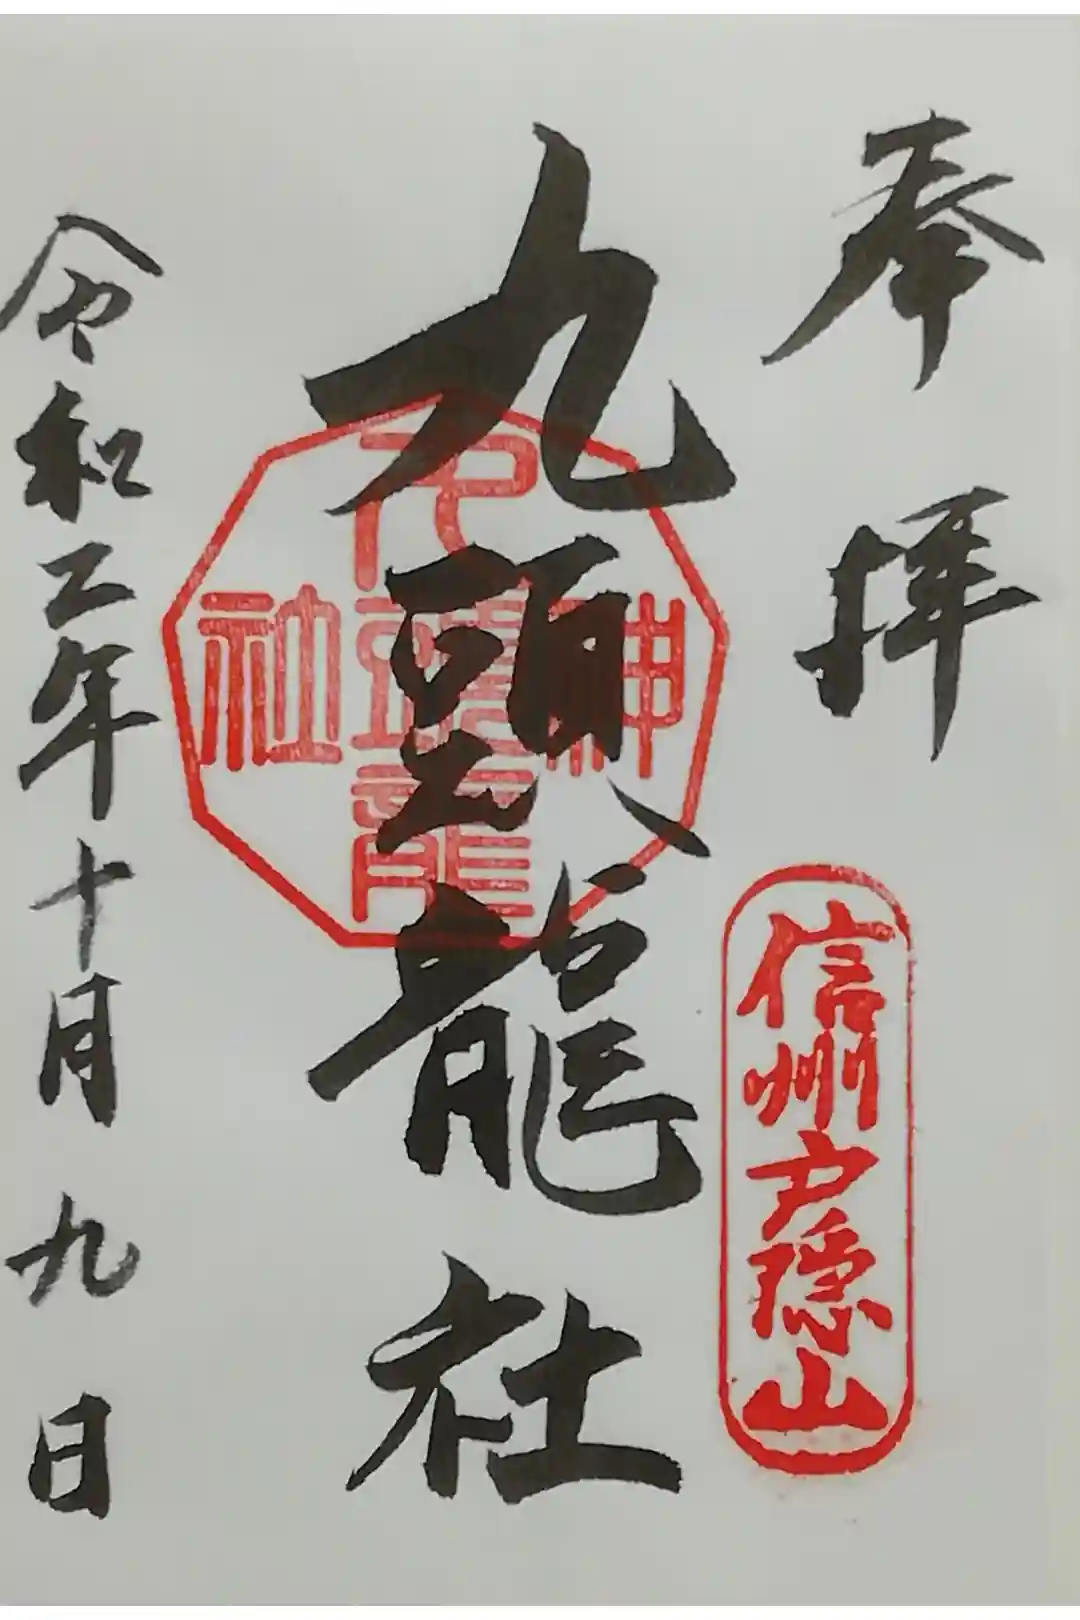 奉拝
信州戸隠山
九頭龍社
九頭龍神社
令和二年十月九日